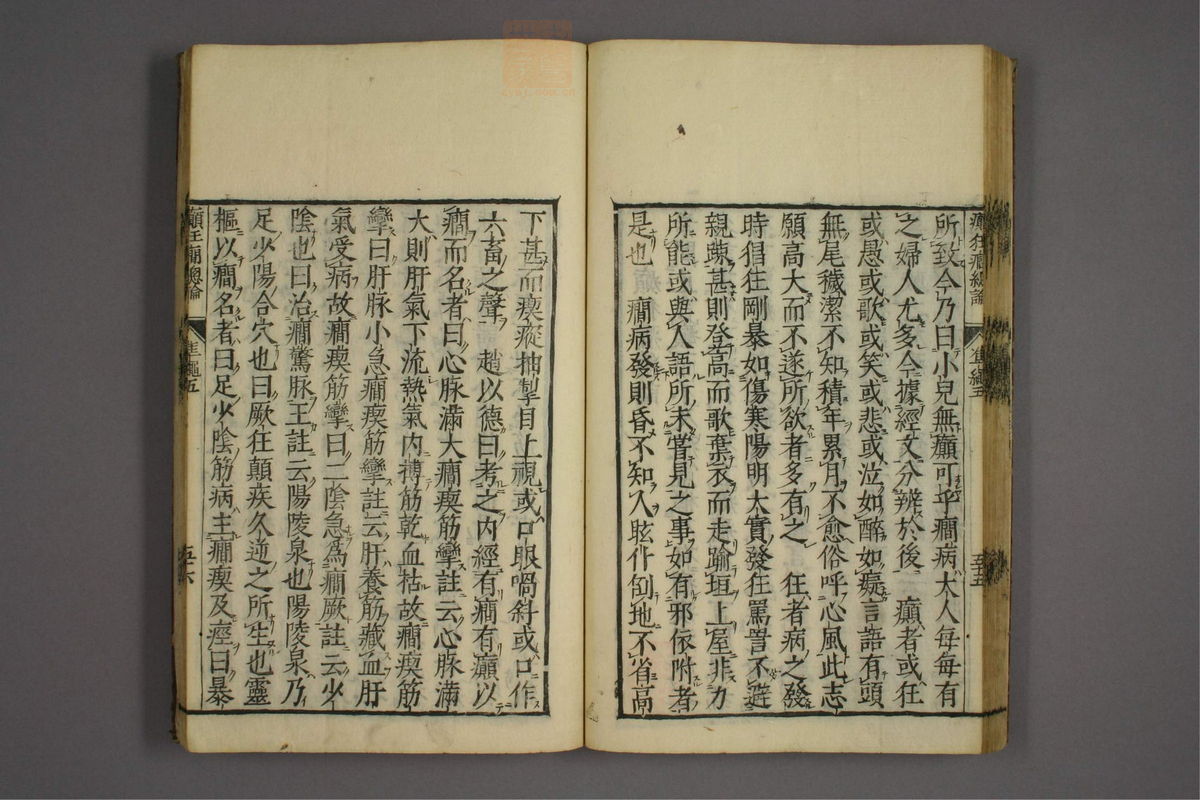 癲狂癇總論 準繩五 五十五
所致今乃曰小兒無癲可乎癇病大人每每有
之婦人尤多今據經文分辨於後 癲者或狂
或愚或歌或笑或悲或泣如醉如癡言語有頭
無尾穢潔不知積年累月不愈俗呼心風此志
願高大而不遂所欲者多有之 狂者病之發
時猖狂剛暴如傷寒陽明大實發狂罵詈不避
親疎甚則登高而歌棄衣而走踰垣上屋非力
所能或與人語所未嘗見之事如有邪依附者
是也 癇病發則昏不知人眩仆倒地不省高
下甚而瘈瘲抽掣目上視或口眼喎斜或口作
六畜之聲 趙以德曰考之內經有癇有癲以
癇而名者曰心脉滿大癇瘈筋攣註云心脉滿
大則肝氣下流熱氣內搏筋乾血枯故癇瘈筋
攣曰肝脉小急癇瘈筋攣註云肝養筋藏血肝
氣受病故癇瘈筋攣曰二陰急爲癇厥註云少
陰也曰治癇驚脉王註云陽陵泉也陽陵泉乃
足少陽合穴也曰厥狂顛疾久逆之所生也靈
樞以癇名者曰足少陰筋病主癇瘈及痙曰暴
癲狂癇總論 準繩五 五十六